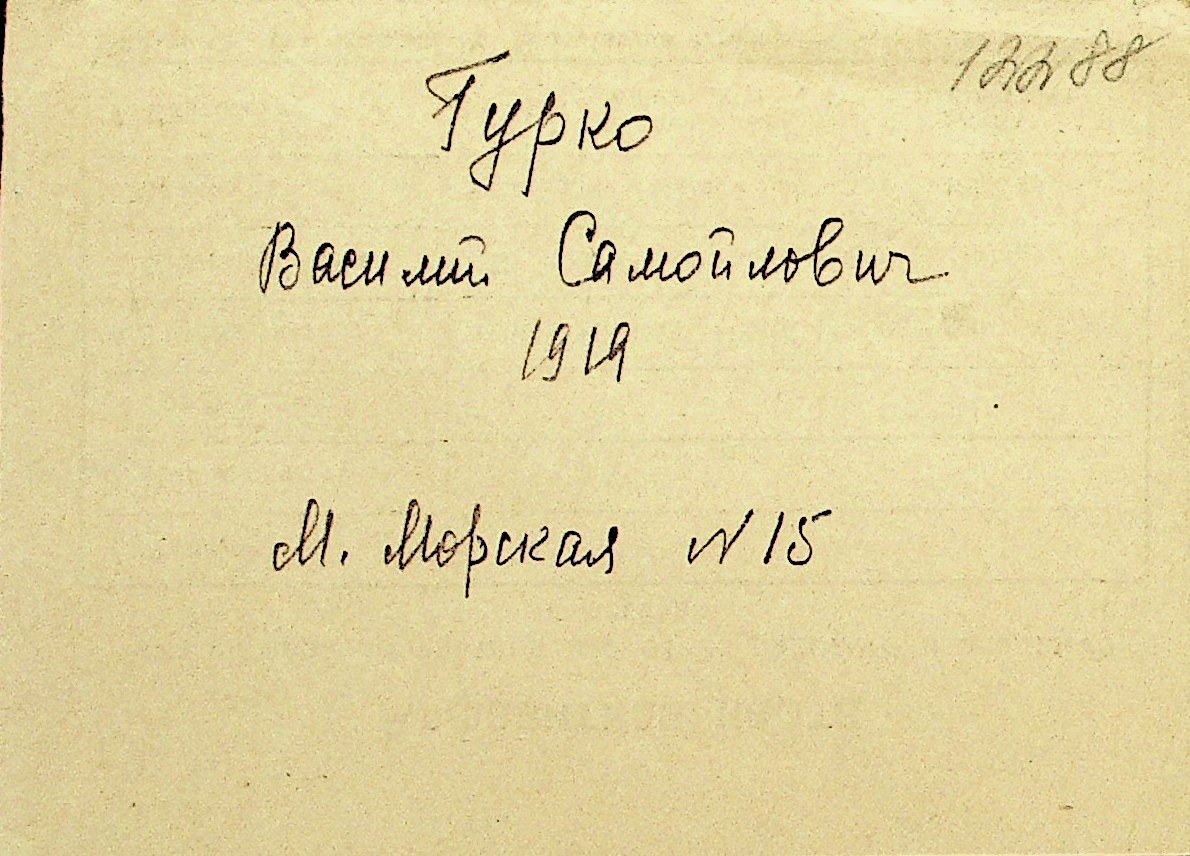 12288
Гурко
Василий Самойлович
1919
М. Морская N 15